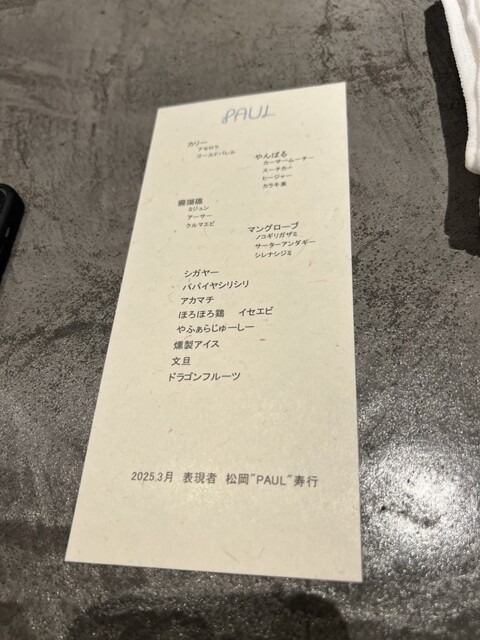 PAUL
カリー
アセロラ
ゴールドバレル
やんばる
カーサームーチー
スーチカー
ヒージャー
カラキ茶
珊瑚礁
ミジュン
アーサー
クルマエビ
マングローブ
ノコギリガザミ
サーターアンダギー
シレナシジミ
シガヤー
パパイヤシリシリ
アカマチ
ほろほろ鶏 イセエビ
やふぁらじゅーしー
燻製アイス
文旦
ドラゴンフルーツ
2025.3月 表現者 松岡"PAUL"寿行